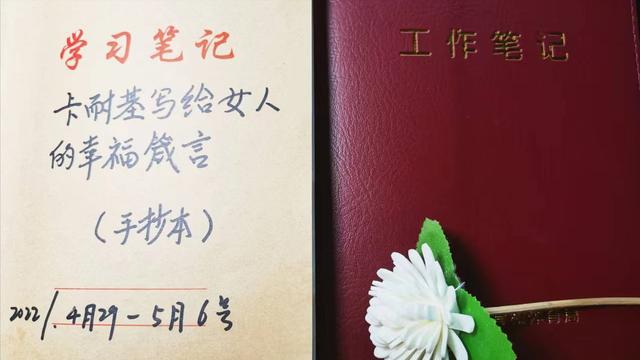 学习笔记
卡耐基写给女人
的幸福箴言
(手抄本)
2022/.4月29-5月6号
工作笔记
育局